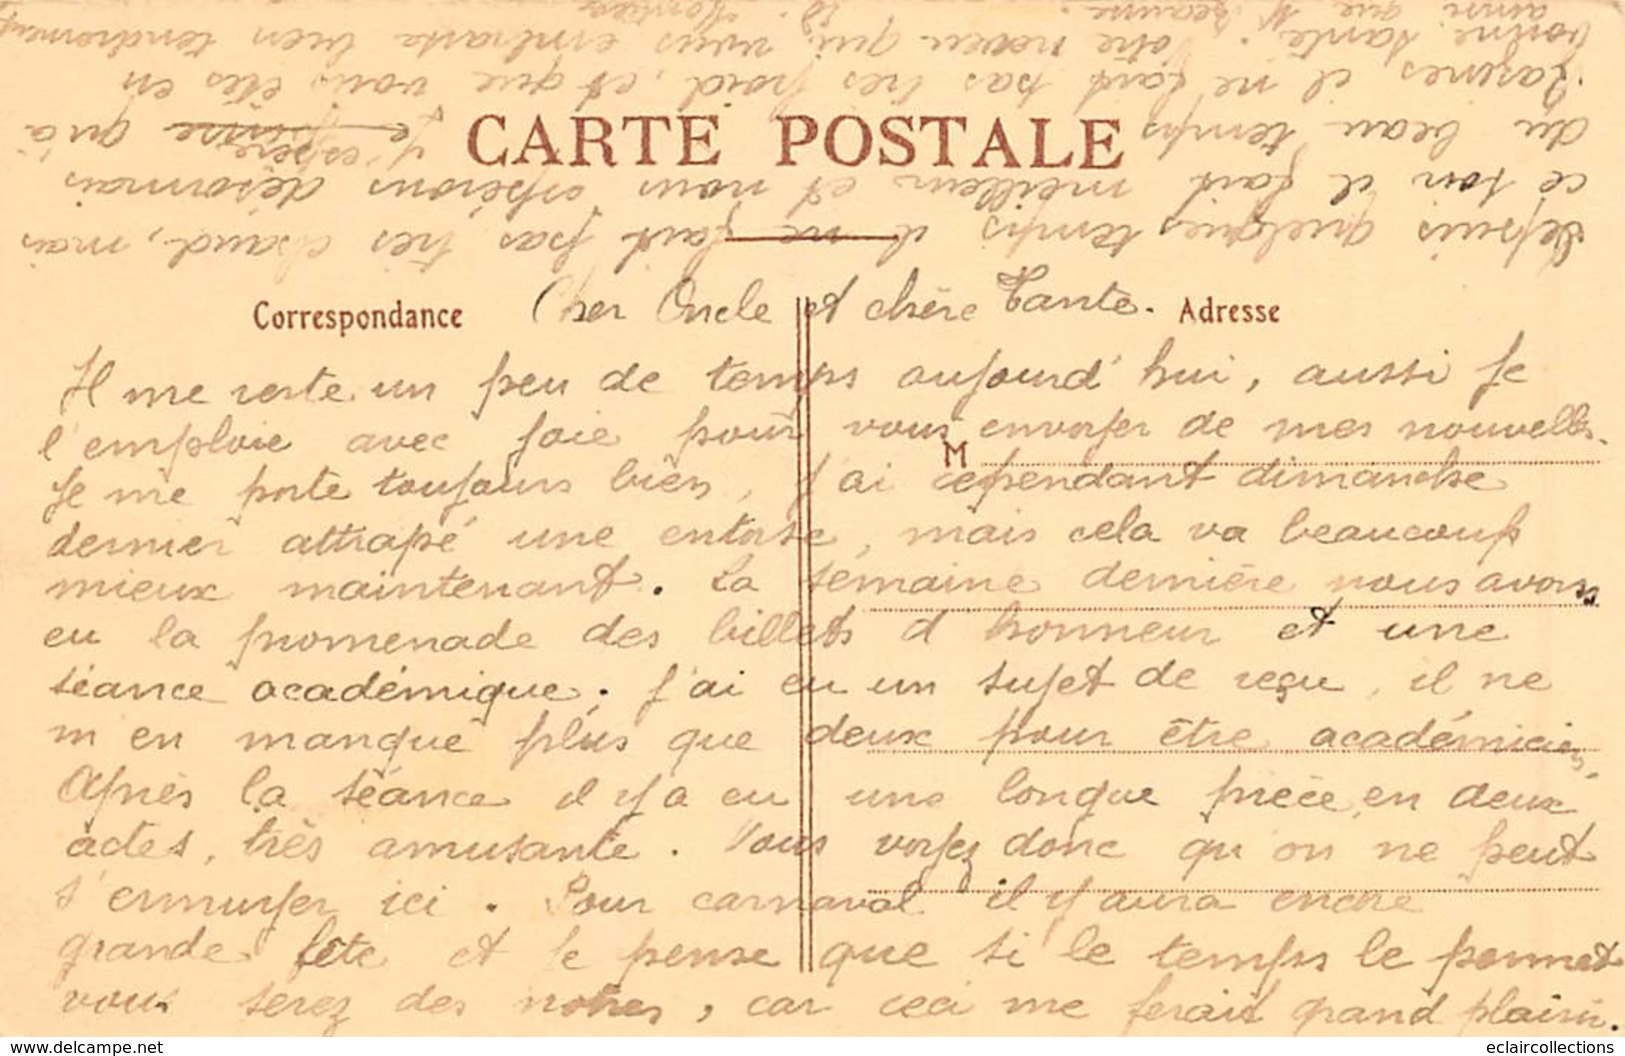 CARTE POSTALE
Correspondance
Adresse
M
Cher Oncle et chère Tante.
Il me reste un peu de temps aujourd'hui, aussi je
l'emploie avec joie pour vous envoyer de mes nouvelles.
Je me porte toujours bien, j'ai cependant dimanche
dernier attrapé une entorse, mais cela va beaucoup
mieux maintenant. La semaine dernière nous avons
eu la promenade des billets d'honneur et une
séance académique. J'ai eu un sujet de reçu, il ne
m'en manque plus que deux pour être académicien.
Après la séance il y a eu une longue pièce en deux
actes, très amusante. Vous voyez donc qu'on ne peut
s'ennuyer ici. Pour carnaval il y aura encore
grande fête et je pense que si le temps le permet
vous serez des nôtres, car ceci me ferait grand plaisir.
Depuis quelques temps il ne fait pas très chaud, mais
ce soir il fait meilleur et nous espérons désormais
du beau temps. Je pense j'espère qu'à
Razines il ne fait pas très froid, et que vous êtes en
bonne santé. Votre neveu qui vous embrasse bien tendrement
ainsi que M. Jeanne.
eclaircollections